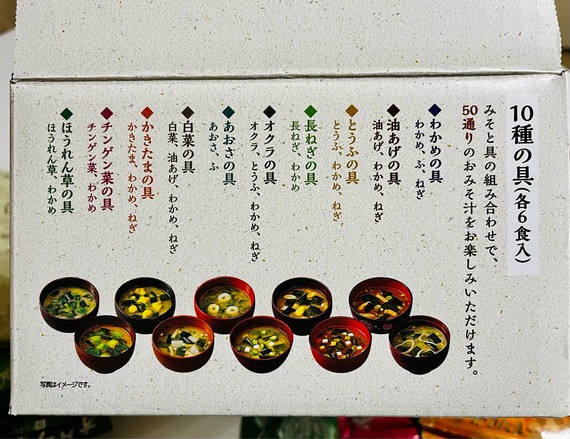 10種の具(各6食入)
みそと具の組み合わせで、
50通りのおみそ汁をお楽しみいただけます。
◆わかめの具
わかめ、ふ、ねぎ
◆油あげの具
油あげ、わかめ、ねぎ
◆とうふの具
とうふ、わかめ、ねぎ
◆長ねぎの具
長ねぎ、わかめ
◆オクラの具
オクラ、とうふ、わかめ、ねぎ
◆あおさの具
あおさ、ふ
◆白菜の具
白菜、油あげ、わかめ、ねぎ
◆かきたまの具
かきたま、わかめ、ねぎ
◆チンゲン菜の具
チンゲン菜、わかめ
◆ほうれん草の具
ほうれん草、わかめ
写真はイメージです。